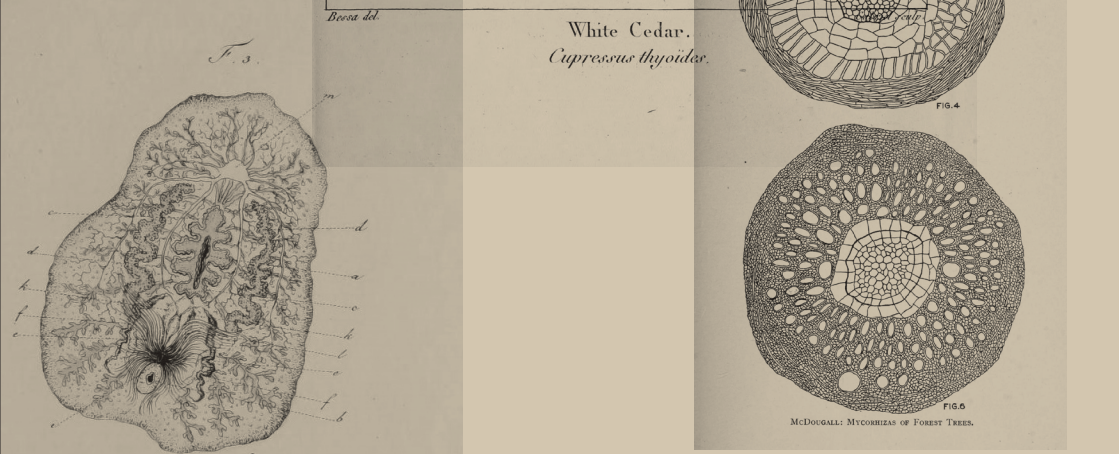 Bessa del.
sculp.
White Cedar.
Cupressus thyoïdes.
F. 3.
m
c
d
d
a
h
c
f
h
e
l
e
f
b
e
FIG.4
FIG.6
McDougall: Mycorhizas of Forest Trees.